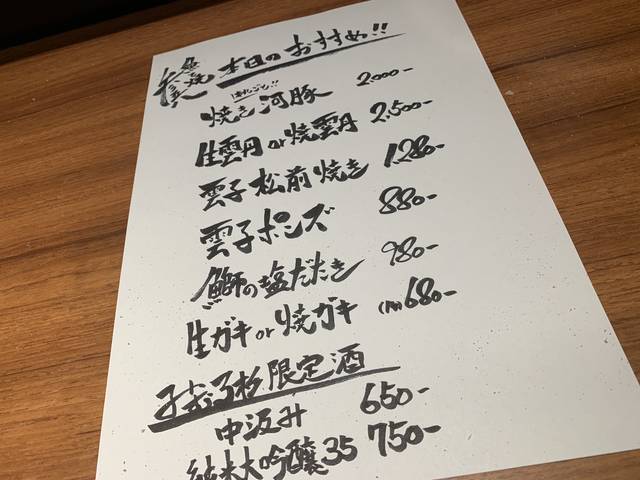 本日のおすすめ!!
焼き河豚 2,000-
生雲丹or焼雲丹 2,500-
雲子松前焼き 1,280-
雲子ポンズ 880-
鰤の塩だたき 980-
生ガキor焼ガキ (1P)680-
限定酒
中汲み 650-
純米大吟醸35 750-